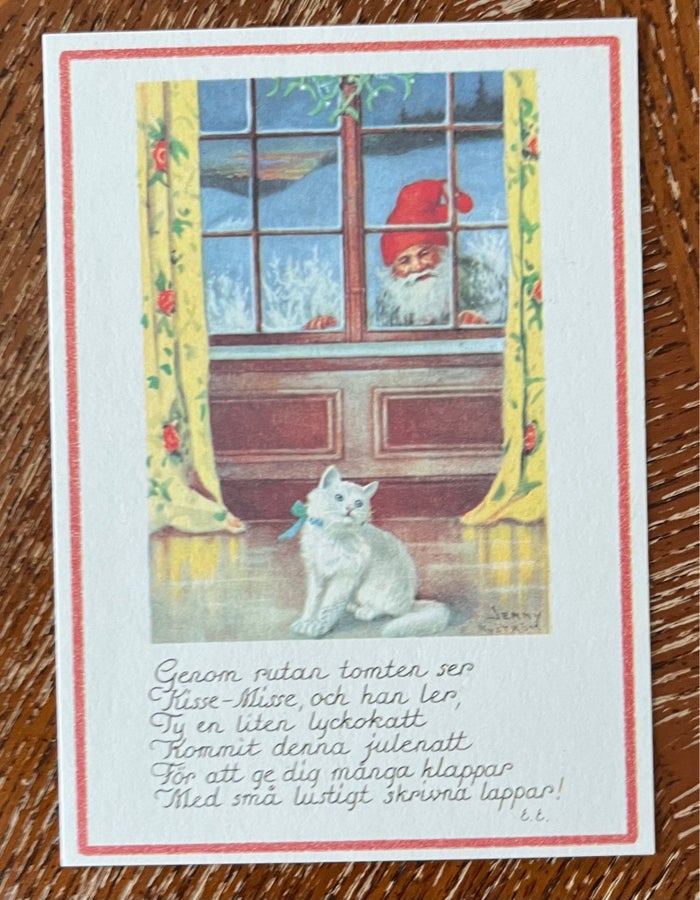 JENNY
NYSTRÖM
Genom rutan tomten ser
Kisse-Misse, och han ler,
Ty en liten lyckokatt
Kommit denna julenatt
För att ge dig många klappar
Med små lustigt skrivna lappar!
E.E.